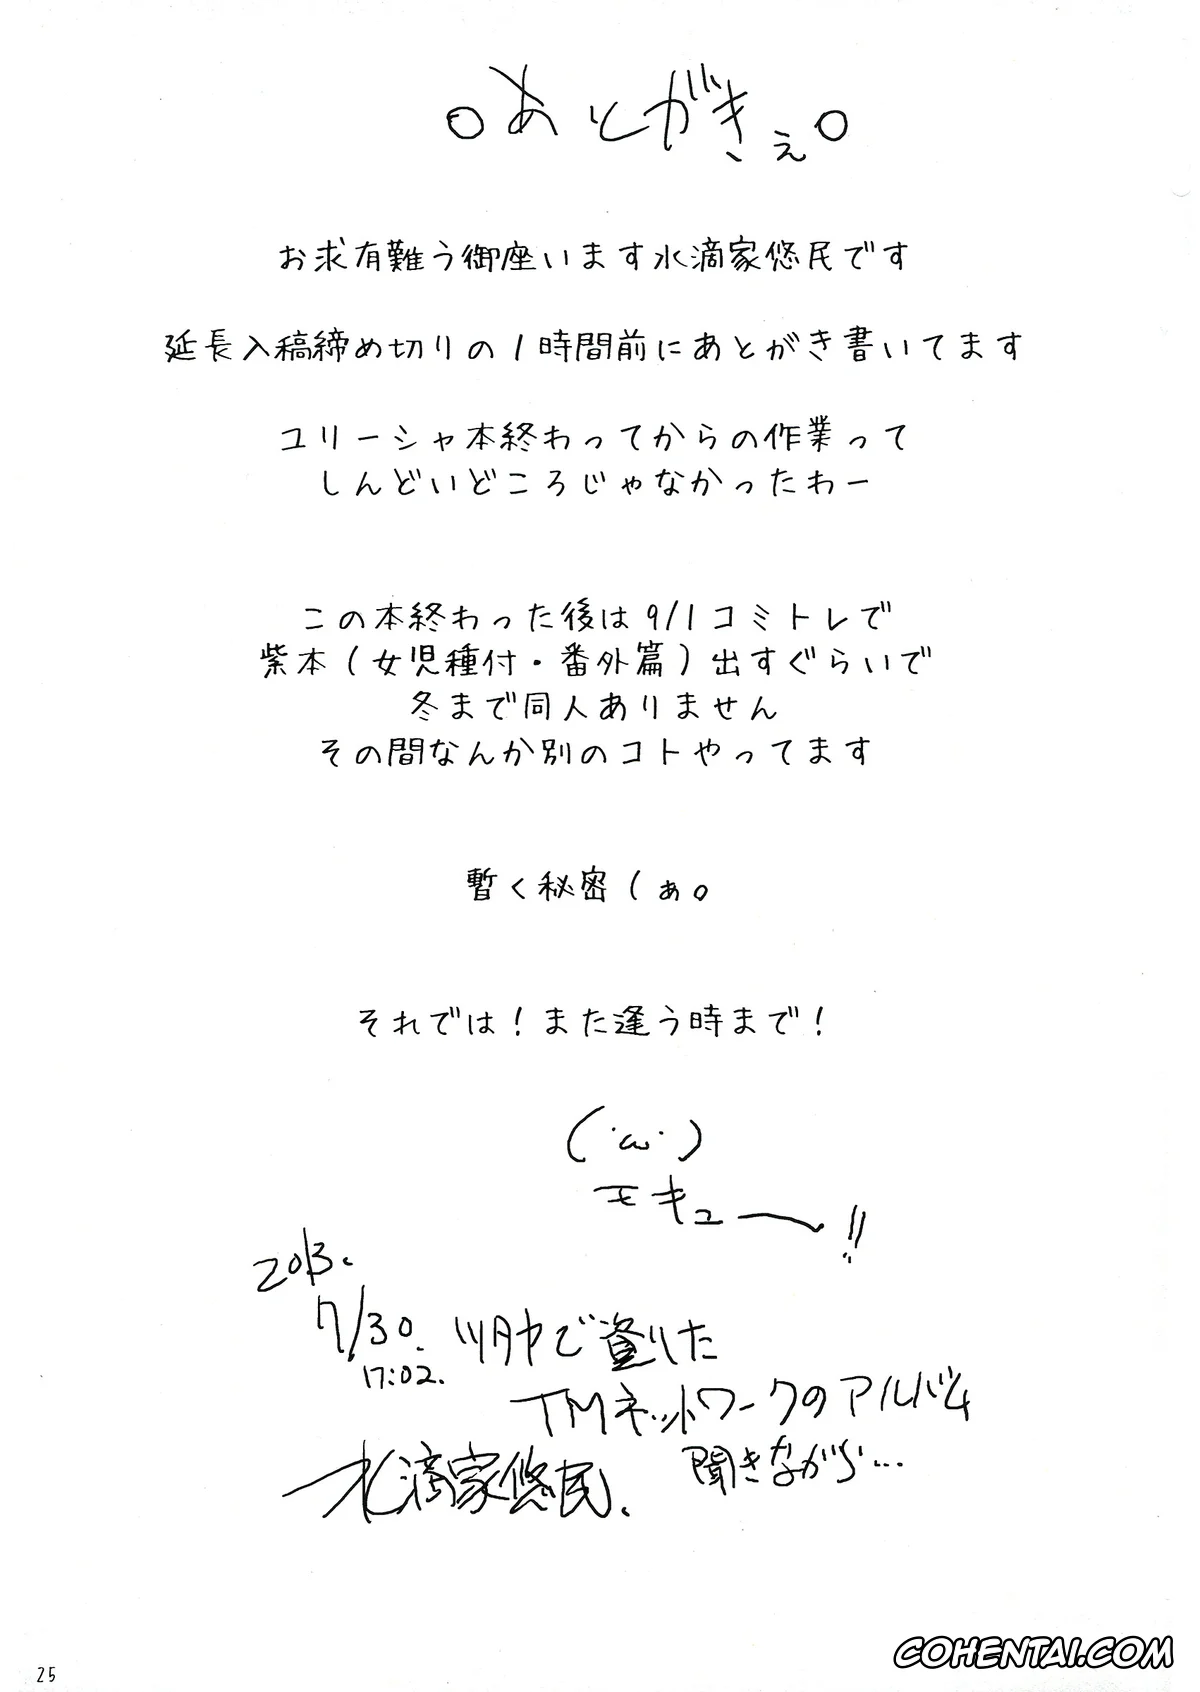 。あとがきぇ。
お求有難う御座います水滴家悠民です
延長入稿締め切りの1時間前にあとがき書いてます
ユリーシャ本終わってからの作業って
しんどいどころじゃなかったわー
この本終わった後は9/1コミトレで
紫本(女児種付・番外篇)出すぐらいで
冬まで同人ありません
その間なんか別のコトやってます
暫く秘密(ぁ。
それでは!また逢う時まで!
(・ω・)
モキュー!!
2013.
7/30.
17:02.
TMネットワークのアルバム
聞きながら…
水滴家悠民.
25
COHENTAI.COM